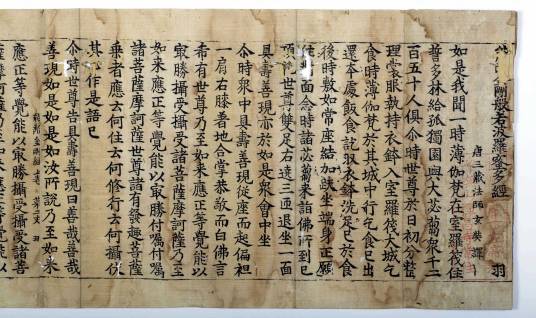 剛般若波羅蜜多經 羽
唐三藏法師玄奘譯
如是我聞一時薄伽梵在室羅筏住
誓多林給孤獨園與大苾芻衆千二
百五十人俱尒時世尊於日初分整
理裳服執持衣鉢入室羅筏大城乞
食時薄伽梵於其城中行乞食已出
還本處飯食訖収衣鉢洗足已於食
後時敷如常座結加趺坐端身正願
住對面念時諸苾芻來詣佛所到已
頂禮世尊雙足右遶三匝退坐一面
具壽善現亦於如是衆會中坐
尒時衆中具壽善現從座而起偏袒
一肩右膝著地合掌恭敬而白佛言
希有世尊乃至如來應正等覺能以
㝡勝攝受攝受諸菩薩摩訶薩乃至
如來應正等覺能以㝡勝付囑付囑
諸菩薩摩訶薩世尊諸有發趣菩薩
乘者應云何住云何修行云何攝伏
其心作是語已
尒時世尊告具壽善現曰善哉善哉
善現如是如是如汝所說乃至如來
應正等覺能以㝡勝攝受攝受諸菩
薩摩訶薩乃至如來應正等覺能以